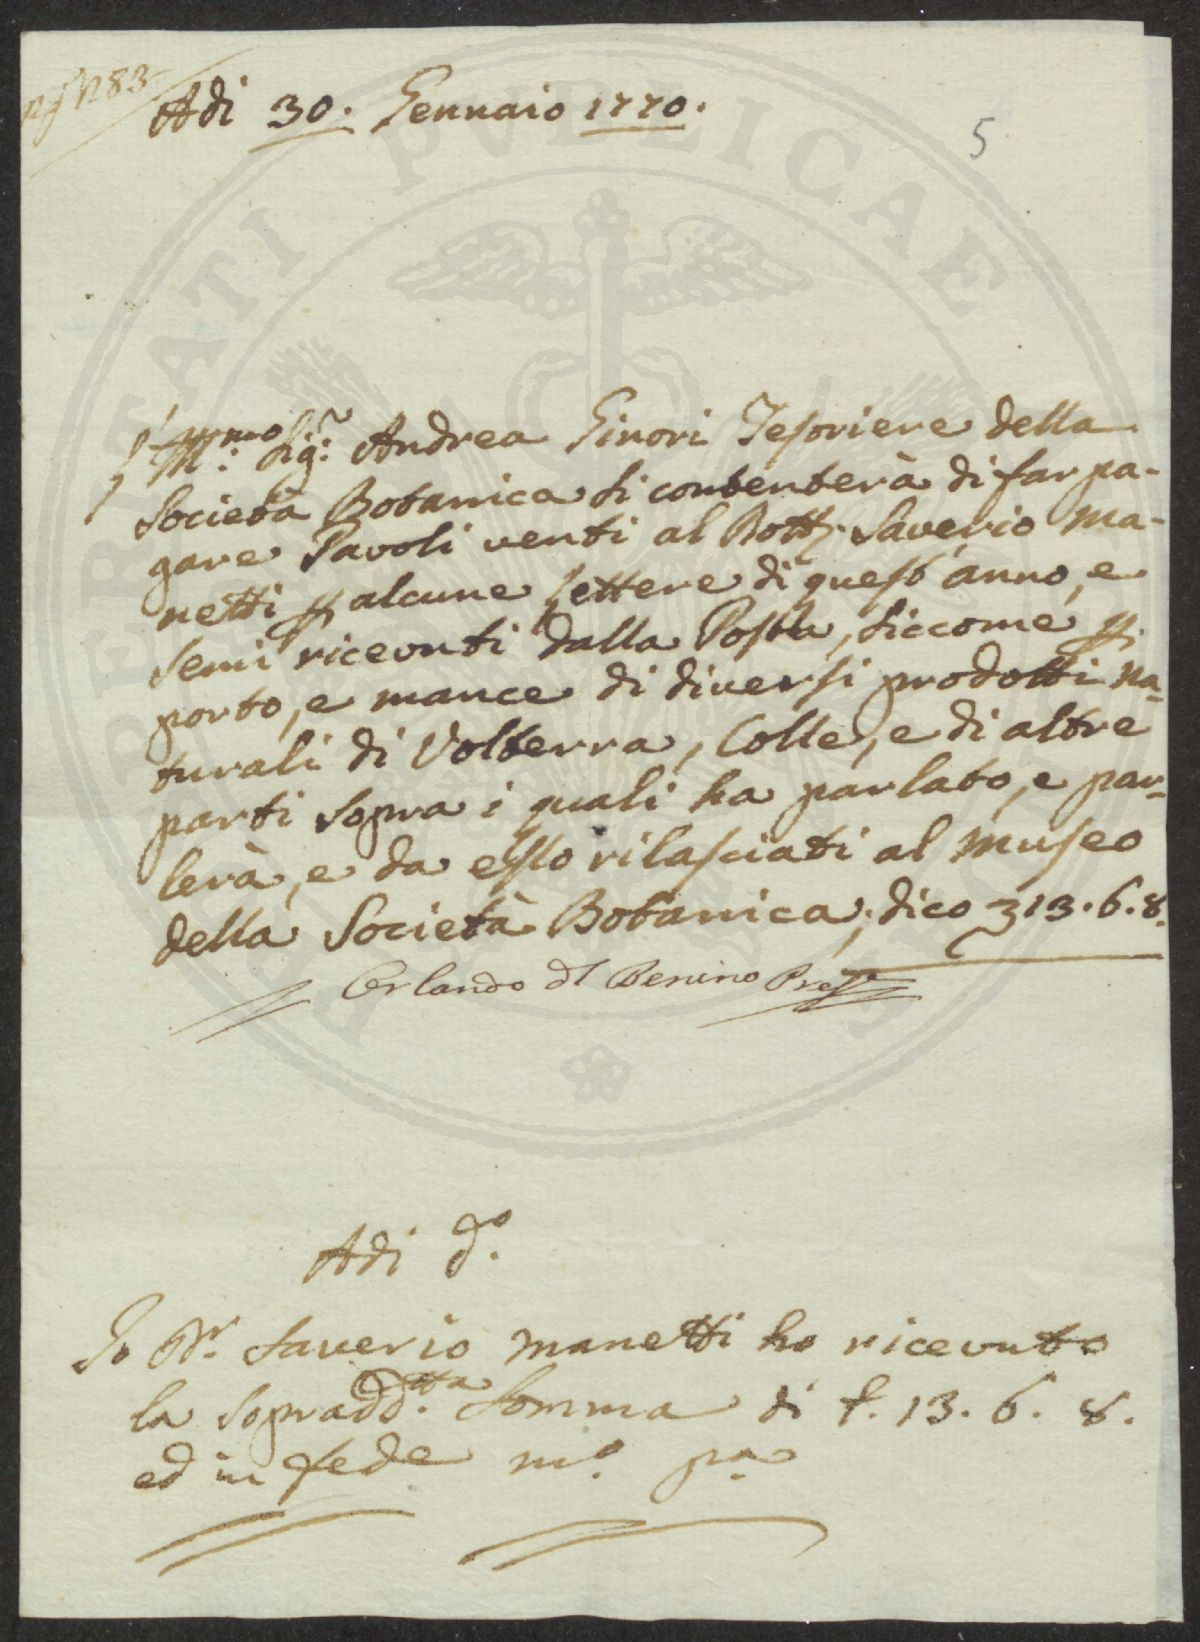 n° 83
Adi 30. Gennaio 1770.
5
Ill.mo Sig.r Andrea Ginori Tesoriere della
Società Botanica si contenterà di far pa-
gare Pavoli venti al Dott. Saverio Ma-
netti p alcune lettere di quest'anno, e
semi ricevuti dalla Posta, siccome p.
porto, e mance di diversi prodotti na-
turali di Volterra, Colle, e di altre
parti sopra i quali ha parlato, e par-
lerà, e da esso rilasciati al Museo
della Società Botanica; dico 13.6.8.
Orlando Dl Benino Pres.e
Adi d.o
Io Dr. Saverio Manetti ho ricevuto
la sopradd.tta Somma di £. 13.6.8.
ed in fede m.o p.a